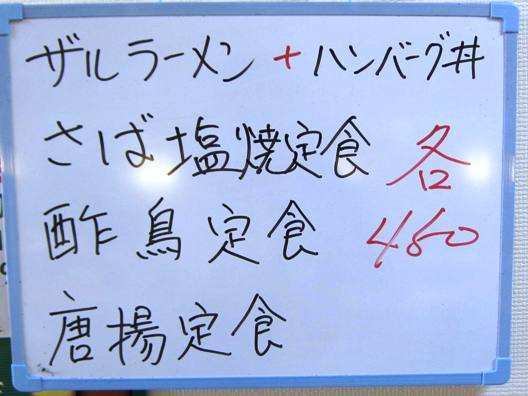 ザルラーメン + ハンバーグ丼
さば塩焼定食 各
酢鳥定食 450
唐揚定食